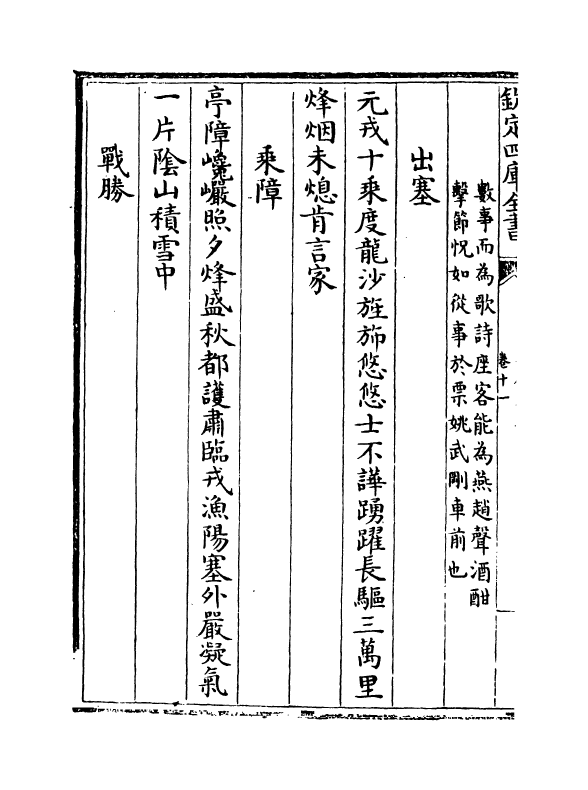 欽定四庫全書
卷十一
數事而為歌詩座客能為燕趙聲酒酣
擊節怳如從事於票姚武剛車前也
出塞
元戎十乘度龍沙旌斾悠悠士不譁踴躍長驅三萬里
烽烟未熄肯言家
乘障
亭障巉巖照夕烽盛秋都護肅臨戎漁陽塞外嚴凝氣
一片陰山積雪中
戰勝